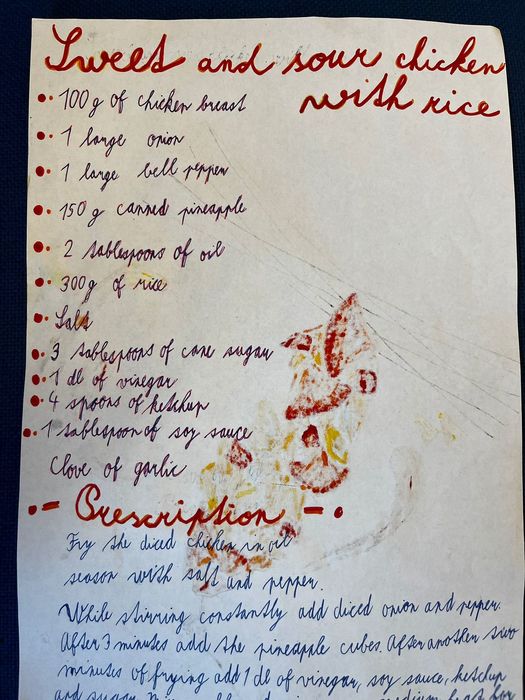 Sweet and sour chicken
with rice
100g of chicken breast
1 large onion
1 large bell pepper
150 g canned pineapple
2 tablespoons of oil
300g of rice
Salt
3 tablespoons of cane sugar
1 dl of vinegar
4 spoons of ketchup
1 tablespoon of soy sauce
Clove of garlic
- Prescription -
Fry the diced chicken in oil
season with salt and pepper.
While stirring constantly add diced onion and pepper.
After 3 minutes add the pineapple cubes. After another two
minutes of frying add 1 dl of vinegar, soy sauce, ketchup
and sugar